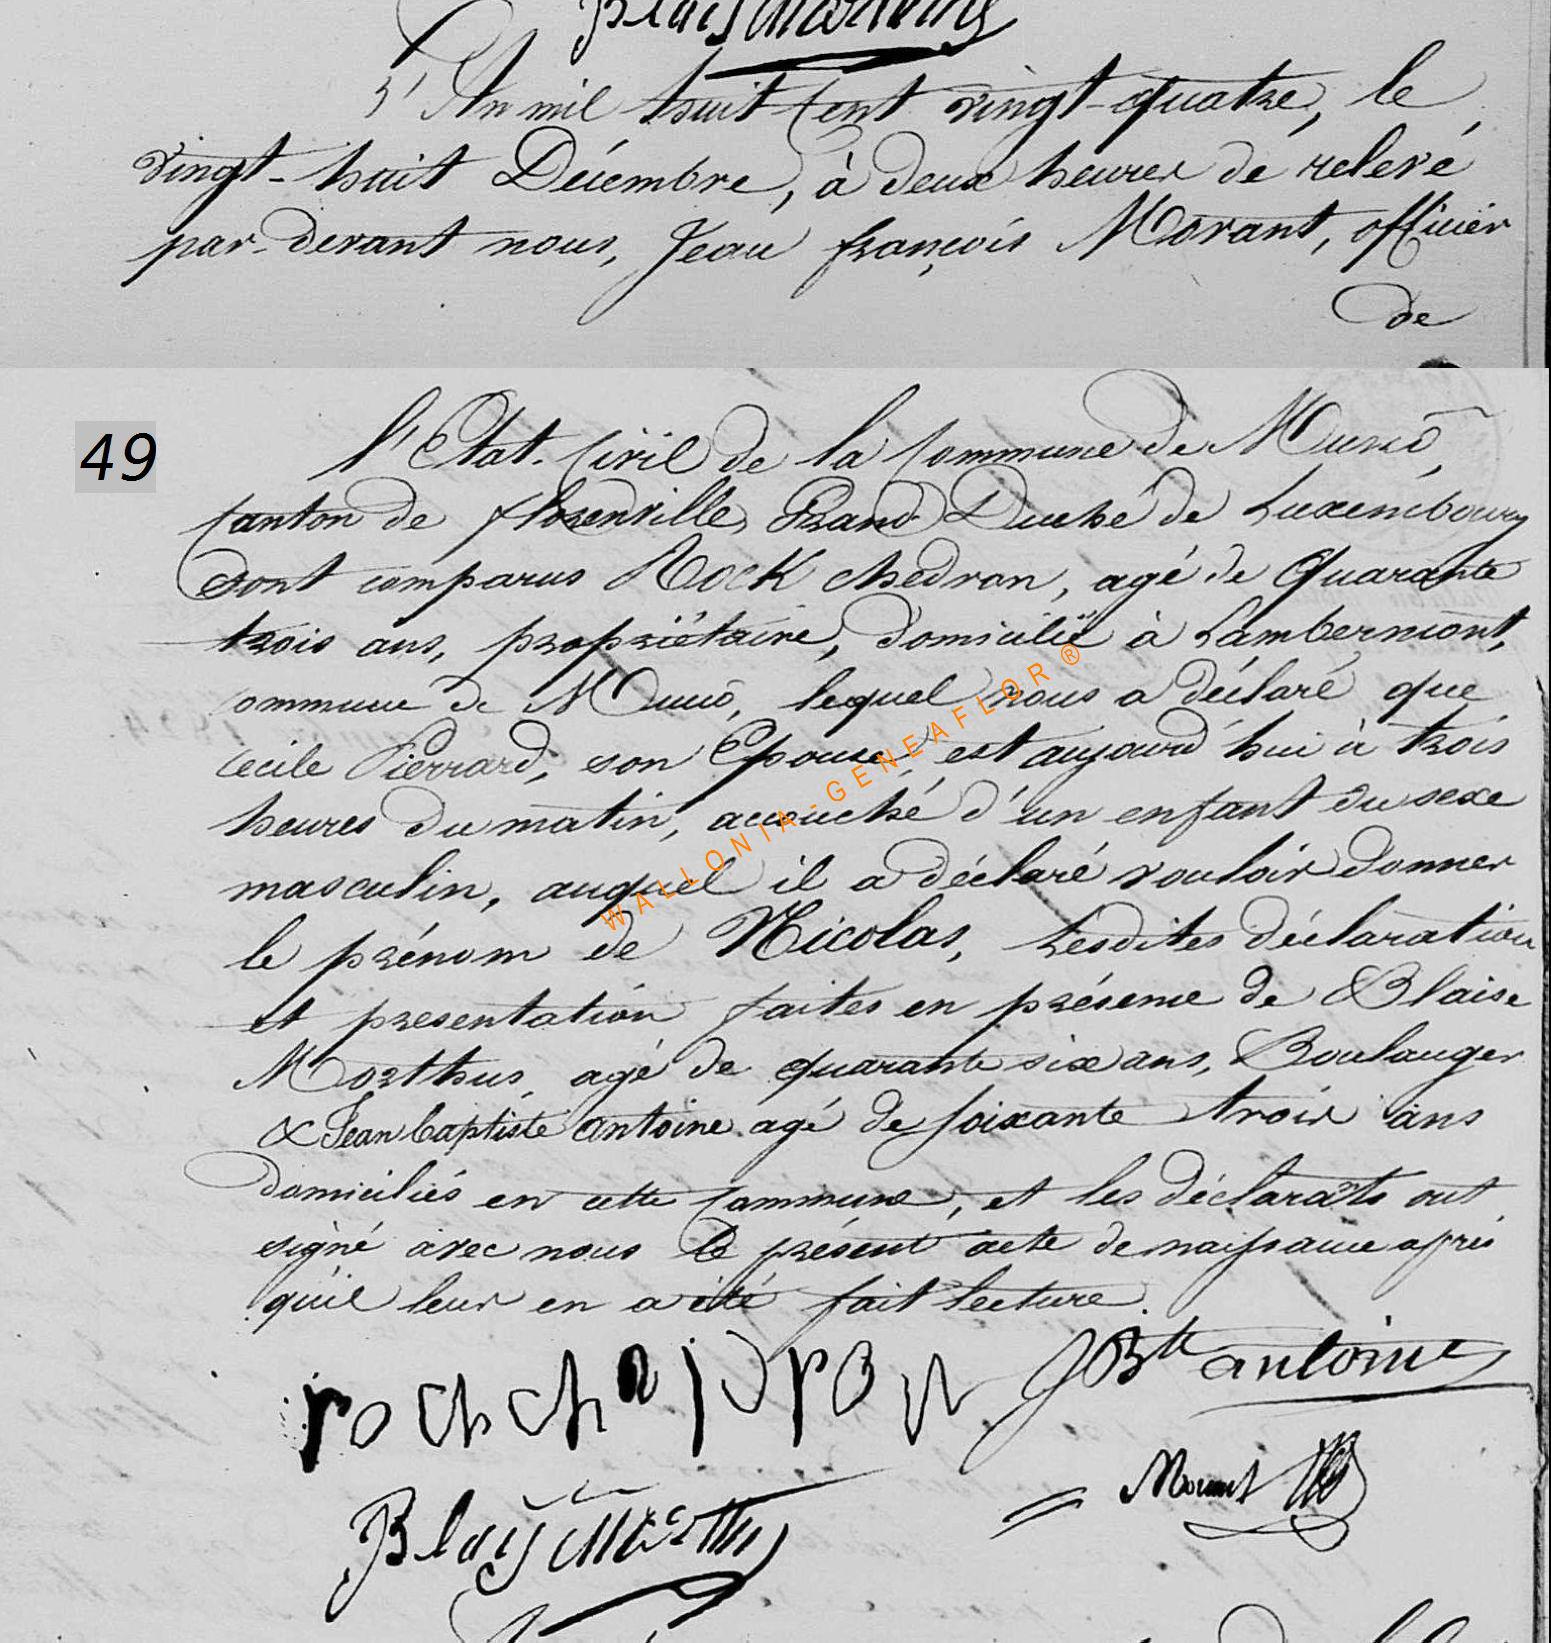 Blais Morthus
L'An mil huit Cent vingt-quatre, le
vingt-huit Décembre, à deux heures de relevé
par-devant nous, Jean françois Morant, officier
de
49
l'Etat-Civil de la Commune de Muno,
Canton de florenville, Grand Duché de Luxembourg
sont comparus Rock chedron, agé de Quarante
trois ans, propriétaire, domicilié à Lambermont,
commune de Muno, lequel nous a déclaré que
Cécile Pierrard, son Epouse, est aujourd'hui à trois
heures du matin, accouché d'un enfant du sexe
masculin, auquel il a déclaré vouloir donner
le prénom de Nicolas, Lesdites déclaration
et presentation faites en présence de Blaise
Morthus, agé de quarante six ans, Boulanger
& Jean baptiste antoine agé de soixante trois ans
domiciliés en cette Commune, et les déclarants ont
signé avec nous le présent acte de naissance après
qu'il leur en a été fait lecture.
roch chajdron JBte antoine
Morant
Blais Morthus
WALLONIA-GENEAFLOR®